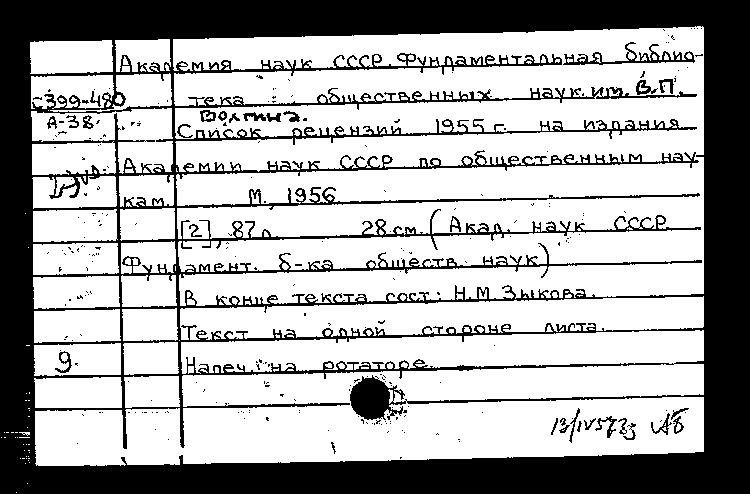 Академия наук СССР. Фундаментальная библио-
С399-480 тека общественных наук им. В.П.
А-38. Волгина.
Список рецензий 1955 г. на издания
Академии наук СССР по общественным нау-
кам. М., 1956
[2], 87 л. 28 см. (Акад. наук СССР
Фундамент. б-ка обществ. наук)
В конце текста сост: Н.М. Зыкова.
Текст на одной стороне листа.
9. Напеч. на ротаторе.
13/IV57г АБ